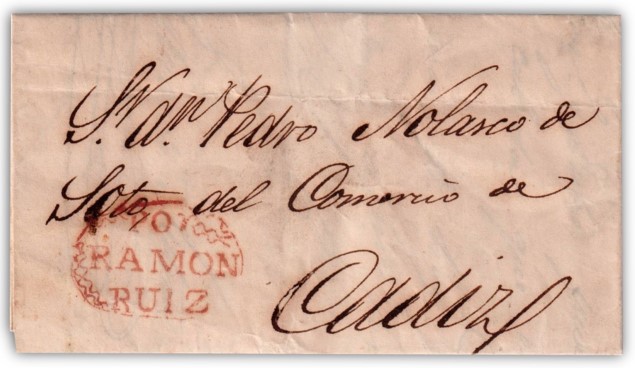 Sr. dn. Pedro Nolasco de
Soto del Comercio de
Cadiz
RAMON
RUIZ